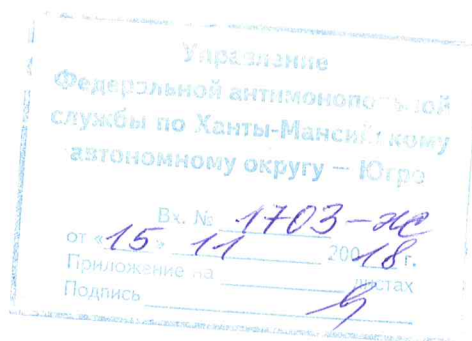 Управление
Федеральной антимонопольной
службы по Ханты-Мансийскому
автономному округу – Югре
Вх. № 1703-ж
от «15» 11 20018 г.
Приложение на листах
Подпись